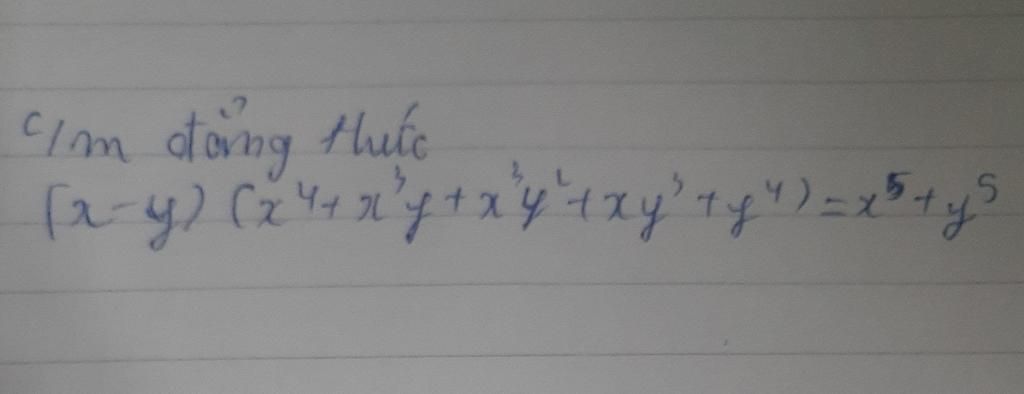 c/m đẳng thức
(x-y)(x⁴+x³y+x³y²+xy³+y⁴)=x⁵+y⁵